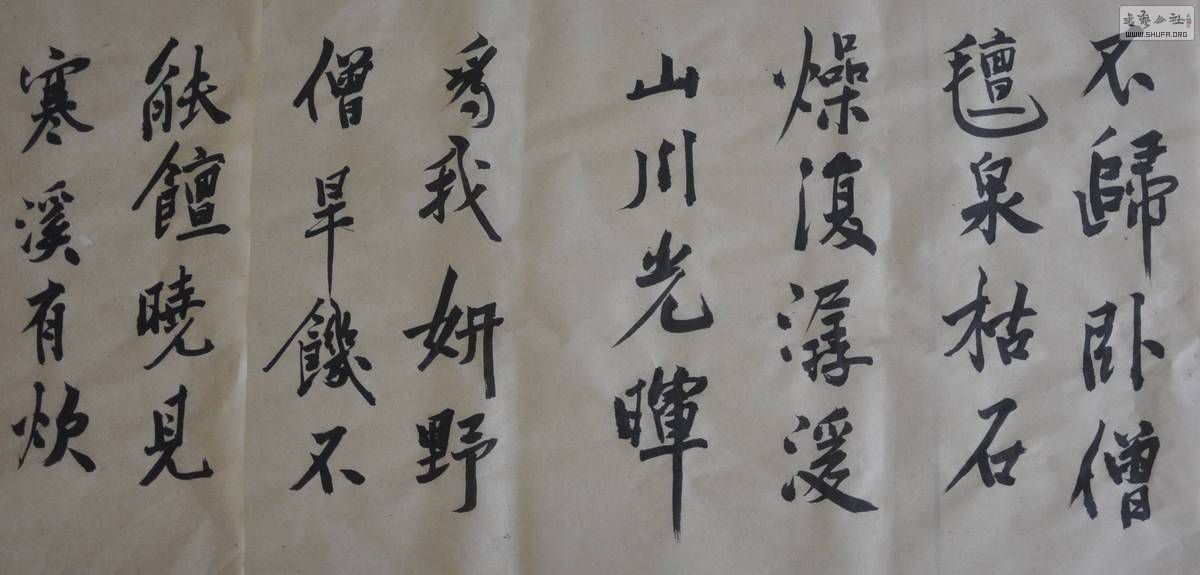 不歸卧僧
氈泉枯石
燥復潺湲
山川光暉
爲我妍野
僧旱饑不
能饘曉見
寒溪有炊
書藝公社
WWW.SHUFA.ORG